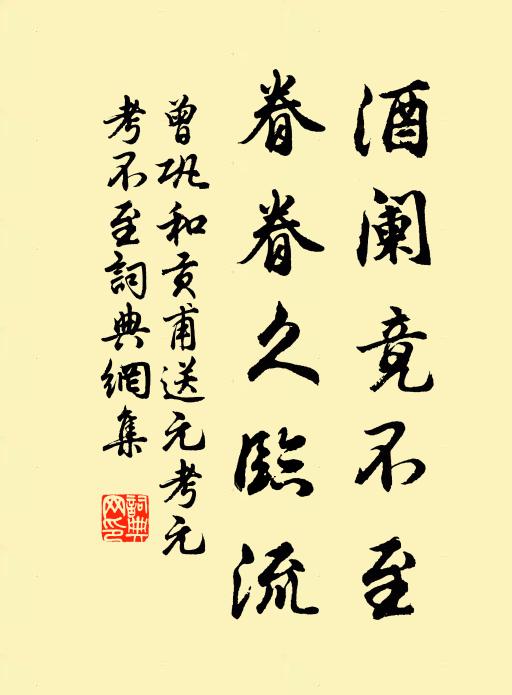 酒阑竟不至
眷眷久臨流
曾巩和贡甫送元考元
考不至詞典網集
詞典网印